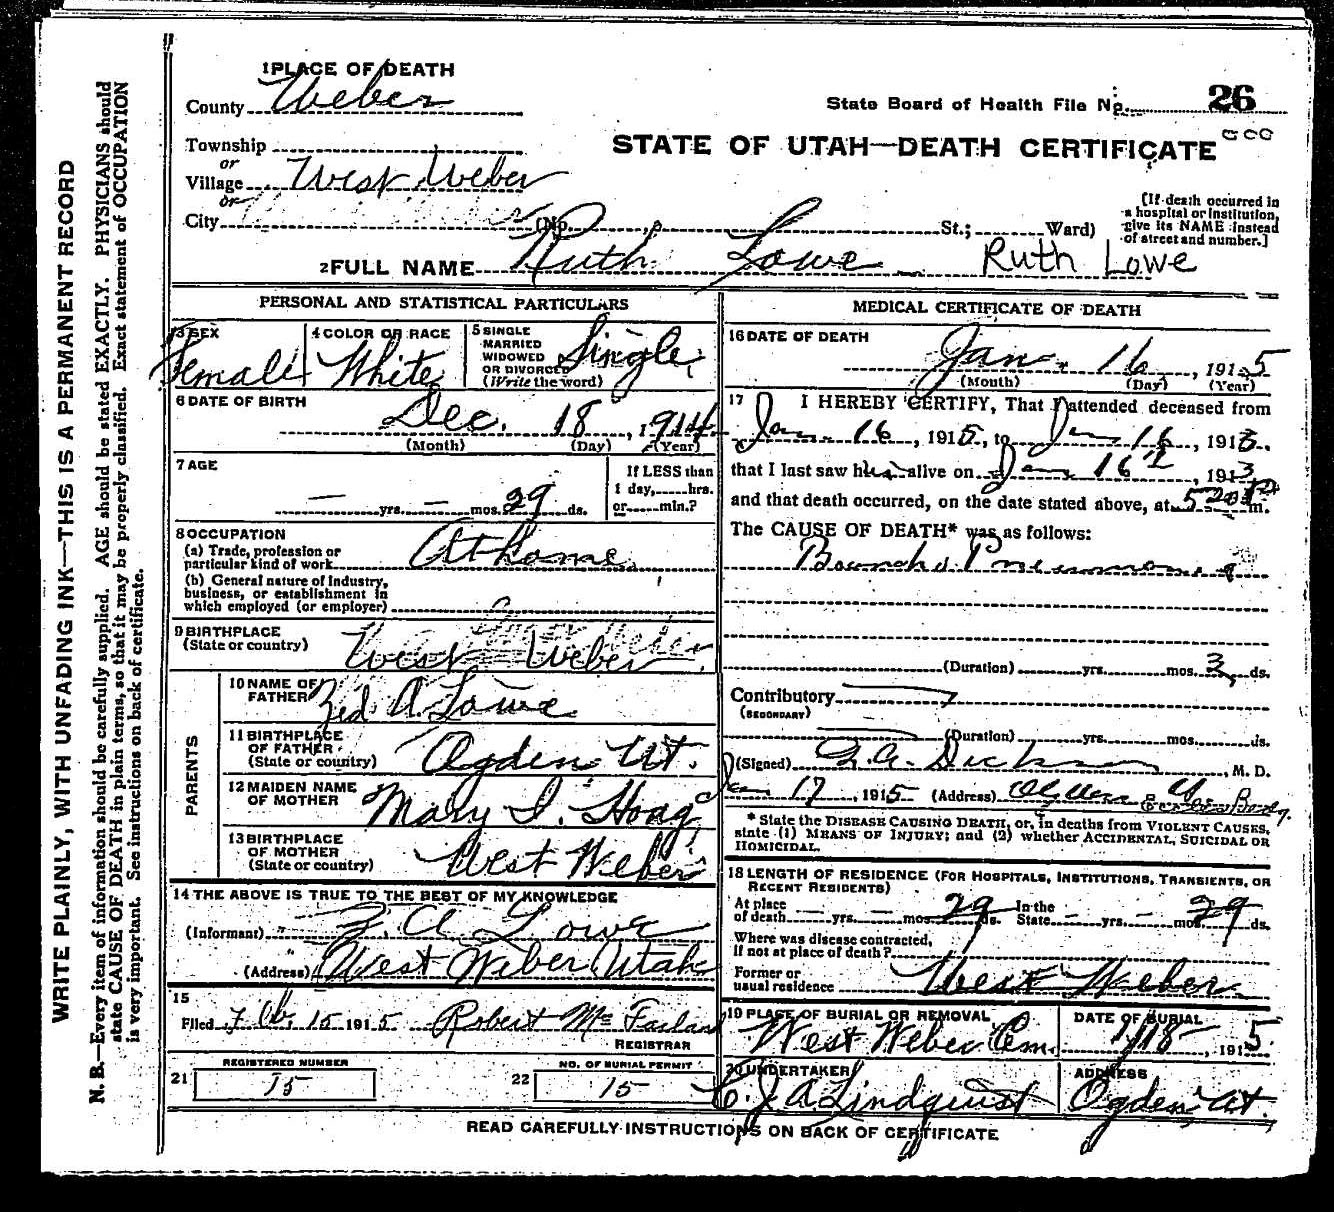 1 PLACE OF DEATH
County Weber
State Board of Health File No. 26
STATE OF UTAH—DEATH CERTIFICATE
Township
or
Village West Weber
or
City
(No. St.; Ward)
[If death occurred in
a hospital or institution,
give its NAME instead
of street and number.]
2 FULL NAME Ruth Lowe Ruth Lowe
PERSONAL AND STATISTICAL PARTICULARS
3 SEX
Female
4 COLOR OR RACE
White
5 SINGLE
MARRIED
WIDOWED
OR DIVORCED
(Write the word)
Single
6 DATE OF BIRTH
Dec. 18, 1914
(Month) (Day) (Year)
7 AGE
— yrs. — mos. 29 ds.
If LESS than
1 day, hrs.
or min.?
8 OCCUPATION
(a) Trade, profession or
particular kind of work At home
(b) General nature of Industry,
business, or establishment in
which employed (or employer)
9 BIRTHPLACE
(State or country) West Weber
PARENTS
10 NAME OF
FATHER Zed. A. Lowe
11 BIRTHPLACE
OF FATHER
(State or country) Ogden Ut.
12 MAIDEN NAME
OF MOTHER Mary I. Hoag
13 BIRTHPLACE
OF MOTHER
(State or country) West Weber
14 THE ABOVE IS TRUE TO THE BEST OF MY KNOWLEDGE
(Informant) Z. A Lowe
(Address) West Weber Utah
15
Filed Feb. 15 1915 Robert Mc Farland
REGISTRAR
REGISTERED NUMBER
21 15
NO. OF BURIAL PERMIT
22 15
MEDICAL CERTIFICATE OF DEATH
16 DATE OF DEATH
Jan. 16, 1915
(Month) (Day) (Year)
17 I HEREBY CERTIFY, That I attended deceased from
Jan. 16, 1915, to Jan 16, 191
that I last saw h alive on Jan 16, 191
and that death occurred, on the date stated above, at m.
The CAUSE OF DEATH* was as follows:
Broncho Pneumonia
(Duration) yrs. mos. 3 ds.
Contributory
(SECONDARY)
(Duration) yrs. mos. ds.
(Signed) Dickson, M. D.
Jan 17, 1915 (Address) Ogden
* State the DISEASE CAUSING DEATH, or, in deaths from VIOLENT CAUSES,
state (1) MEANS OF INJURY; and (2) whether ACCIDENTAL, SUICIDAL OR
HOMICIDAL.
18 LENGTH OF RESIDENCE (FOR HOSPITALS, INSTITUTIONS, TRANSIENTS, OR
RECENT RESIDENTS)
At place
of death — yrs. — mos. 29 ds.
In the
State — yrs. — mos. 29 ds.
Where was disease contracted,
if not at place of death?
Former or
usual residence West Weber
19 PLACE OF BURIAL OR REMOVAL
West Weber Cem.
DATE OF BURIAL
1/18, 1915.
20 UNDERTAKER
C. J. A. Lindquist
ADDRESS
Ogden, Ut.
READ CAREFULLY INSTRUCTIONS ON BACK OF CERTIFICATE
WRITE PLAINLY, WITH UNFADING INK—THIS IS A PERMANENT RECORD
N. B.—Every item of information should be carefully supplied. AGE should be stated EXACTLY. PHYSICIANS should
state CAUSE OF DEATH in plain terms, so that it may be properly classified. Exact statement of OCCUPATION
is very important. See instructions on back of certificate.